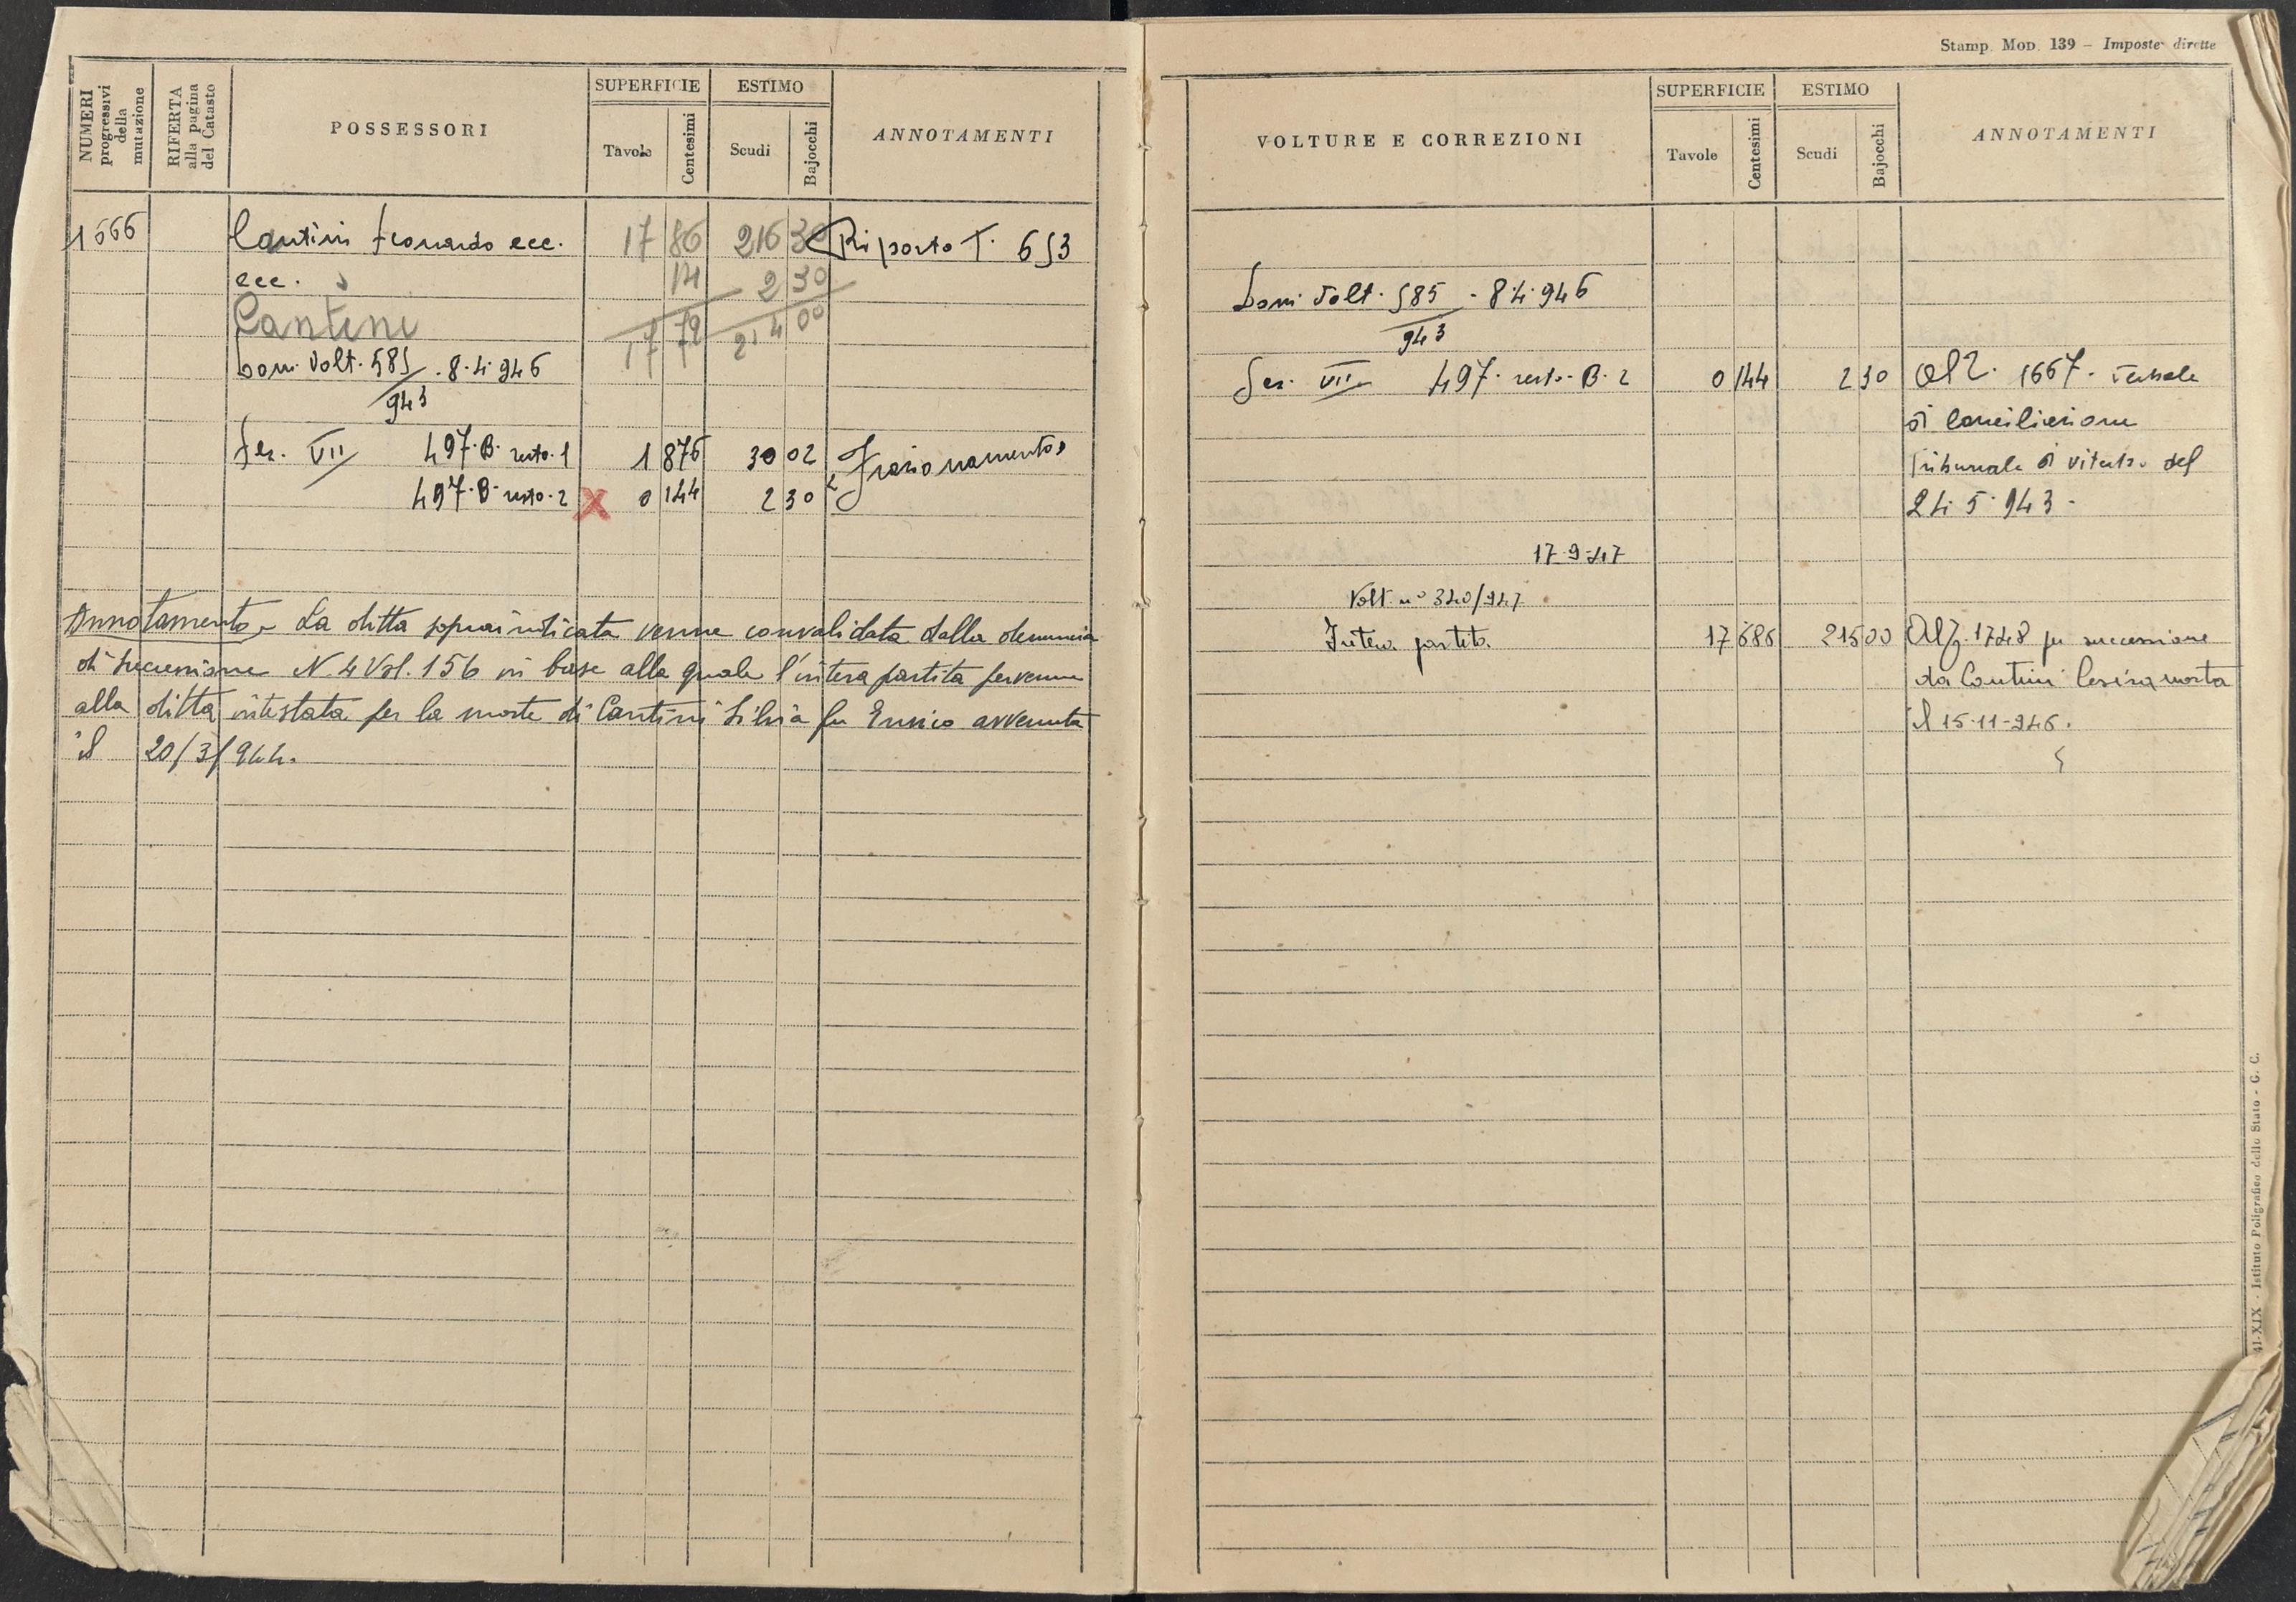 NUMERI progressivi della mutazione
RIFERTA alla pagina del Catasto
POSSESSORI
SUPERFICIE
Tavole
Centesimi
ESTIMO
Scudi
Bajocchi
ANNOTAMENTI
1666 Cantini Leonardo ecc. 17 86 216 30 Riporto T. 653
ecc. 14 2 30
Cantini 17 72 214 00
Com. Volt. 585/943 . 8.4.946
Sez. VII 497.B. resto.1 1 876 30 02 Frazionamento
497.B. resto.2 X 0 144 2 30
Annotamento - La ditta sopraindicata venne convalidata dalla denuncia
di successione N. 4 Vol. 156 in base alla quale l'intera partita pervenne
alla ditta intestata per la morte di Cantini Silvia fu Enrico avvenuta
il 20/3/944.
Stamp. Mod. 139 – Imposte dirette
VOLTURE E CORREZIONI
SUPERFICIE
Tavole
Centesimi
ESTIMO
Scudi
Bajocchi
ANNOTAMENTI
Com. Volt. 585/943 . 8.4.946
Sez. VII 497. resto. B. 2 0 144 2 30 Al 2. 1667. Verbale
di Conciliazione
Tribunale di Viterbo del
24.5.943.
17.9.47
Volt. n° 340/947
Intera partita. 17 686 215 00 Al 2. 1748 per successione
da Cantini Cesira morta
il 15-11-946.
41-XIX - Istituto Poligrafico dello Stato - G. C.